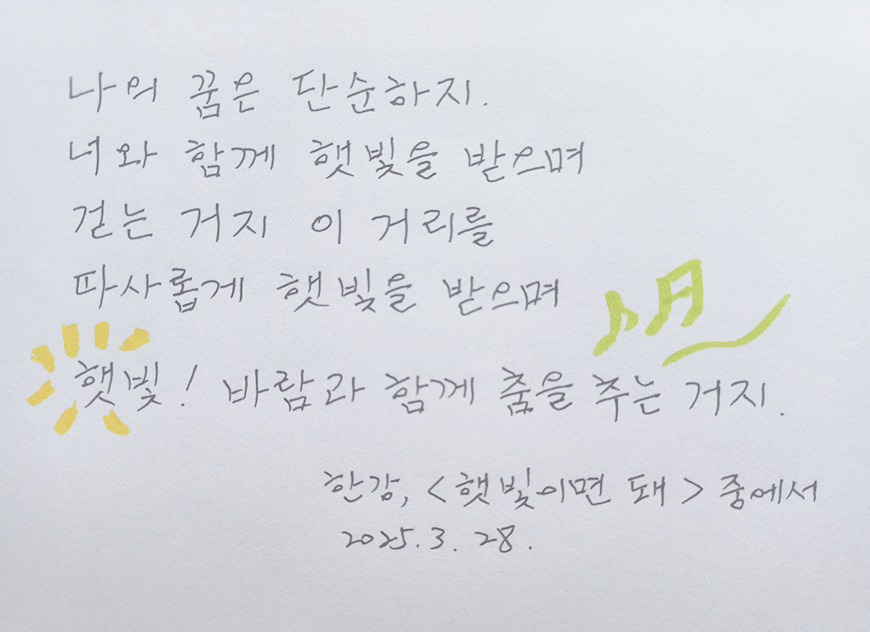 나의 꿈은 단순하지.
너와 함께 햇빛을 받으며
걷는 거지 이 거리를
따사롭게 햇빛을 받으며
햇빛! 바람과 함께 춤을 추는 거지.
한강, <햇빛이면 돼> 중에서
2025.3.28.